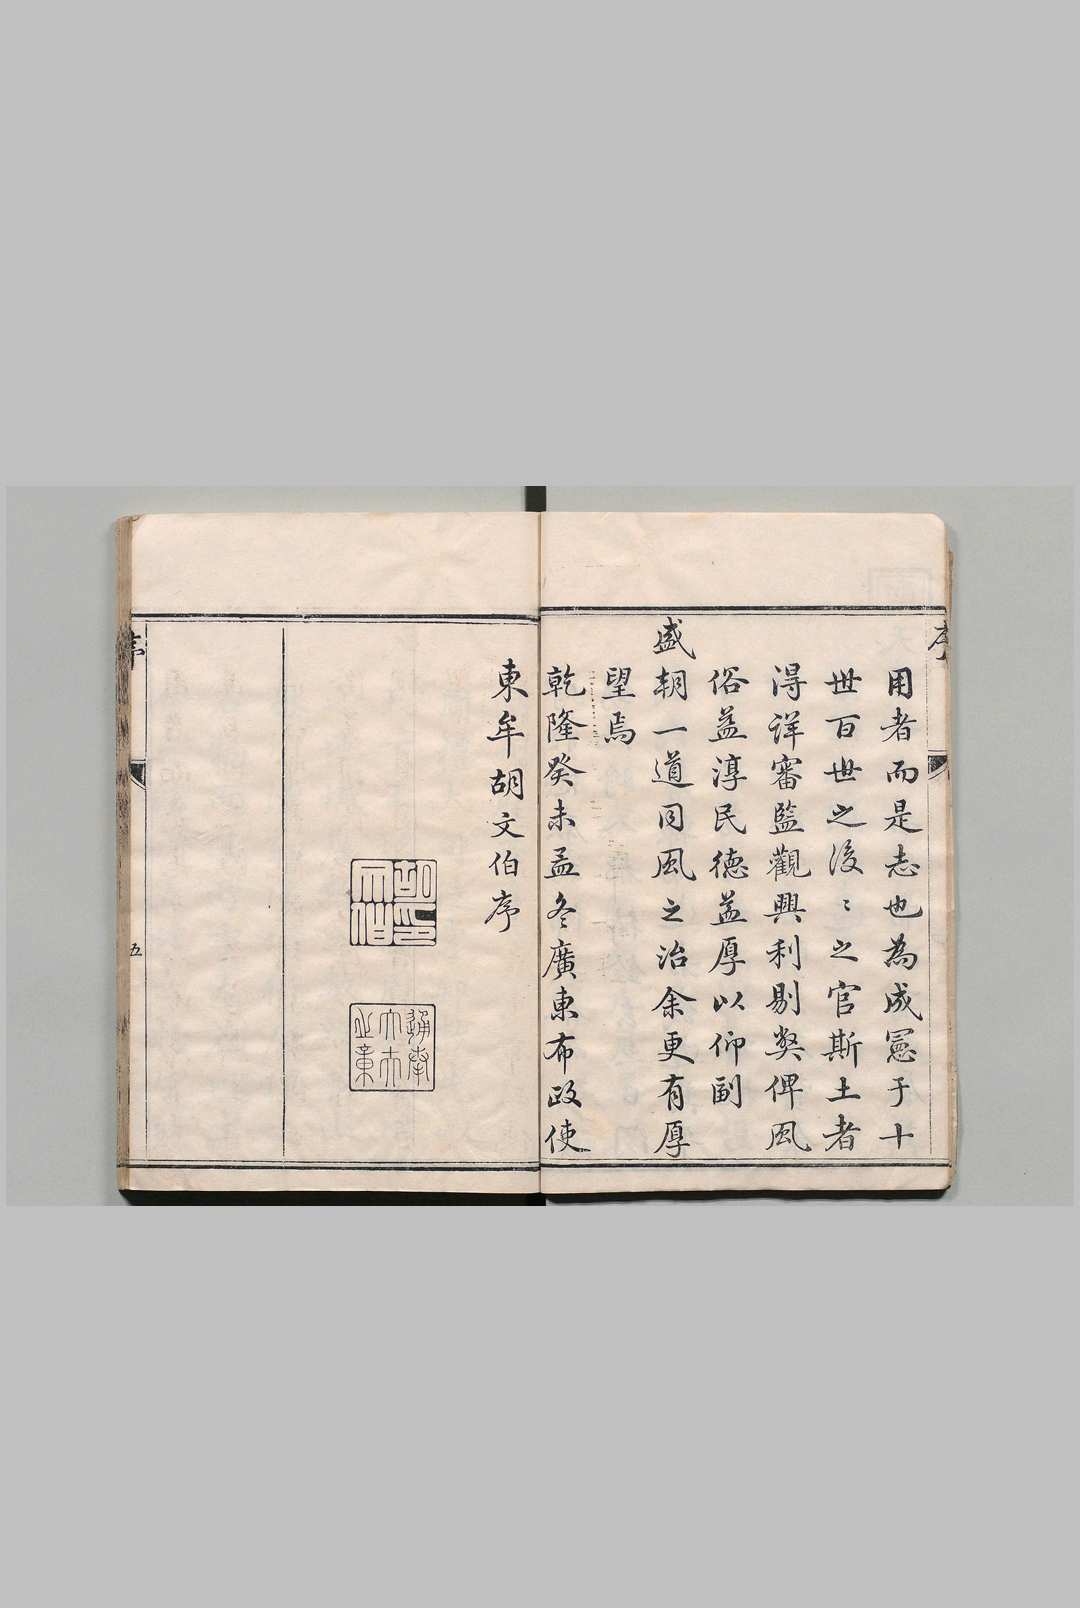 序
用者而是志也為成憲于十
世百世之後〻之官斯土者
得詳審監觀興利剔獘俾風
俗益淳民德益厚以仰副
盛朝一道同風之治余更有厚
望焉
乾隆癸未孟冬廣東布政使
東牟胡文伯序
胡印文伯
序
五